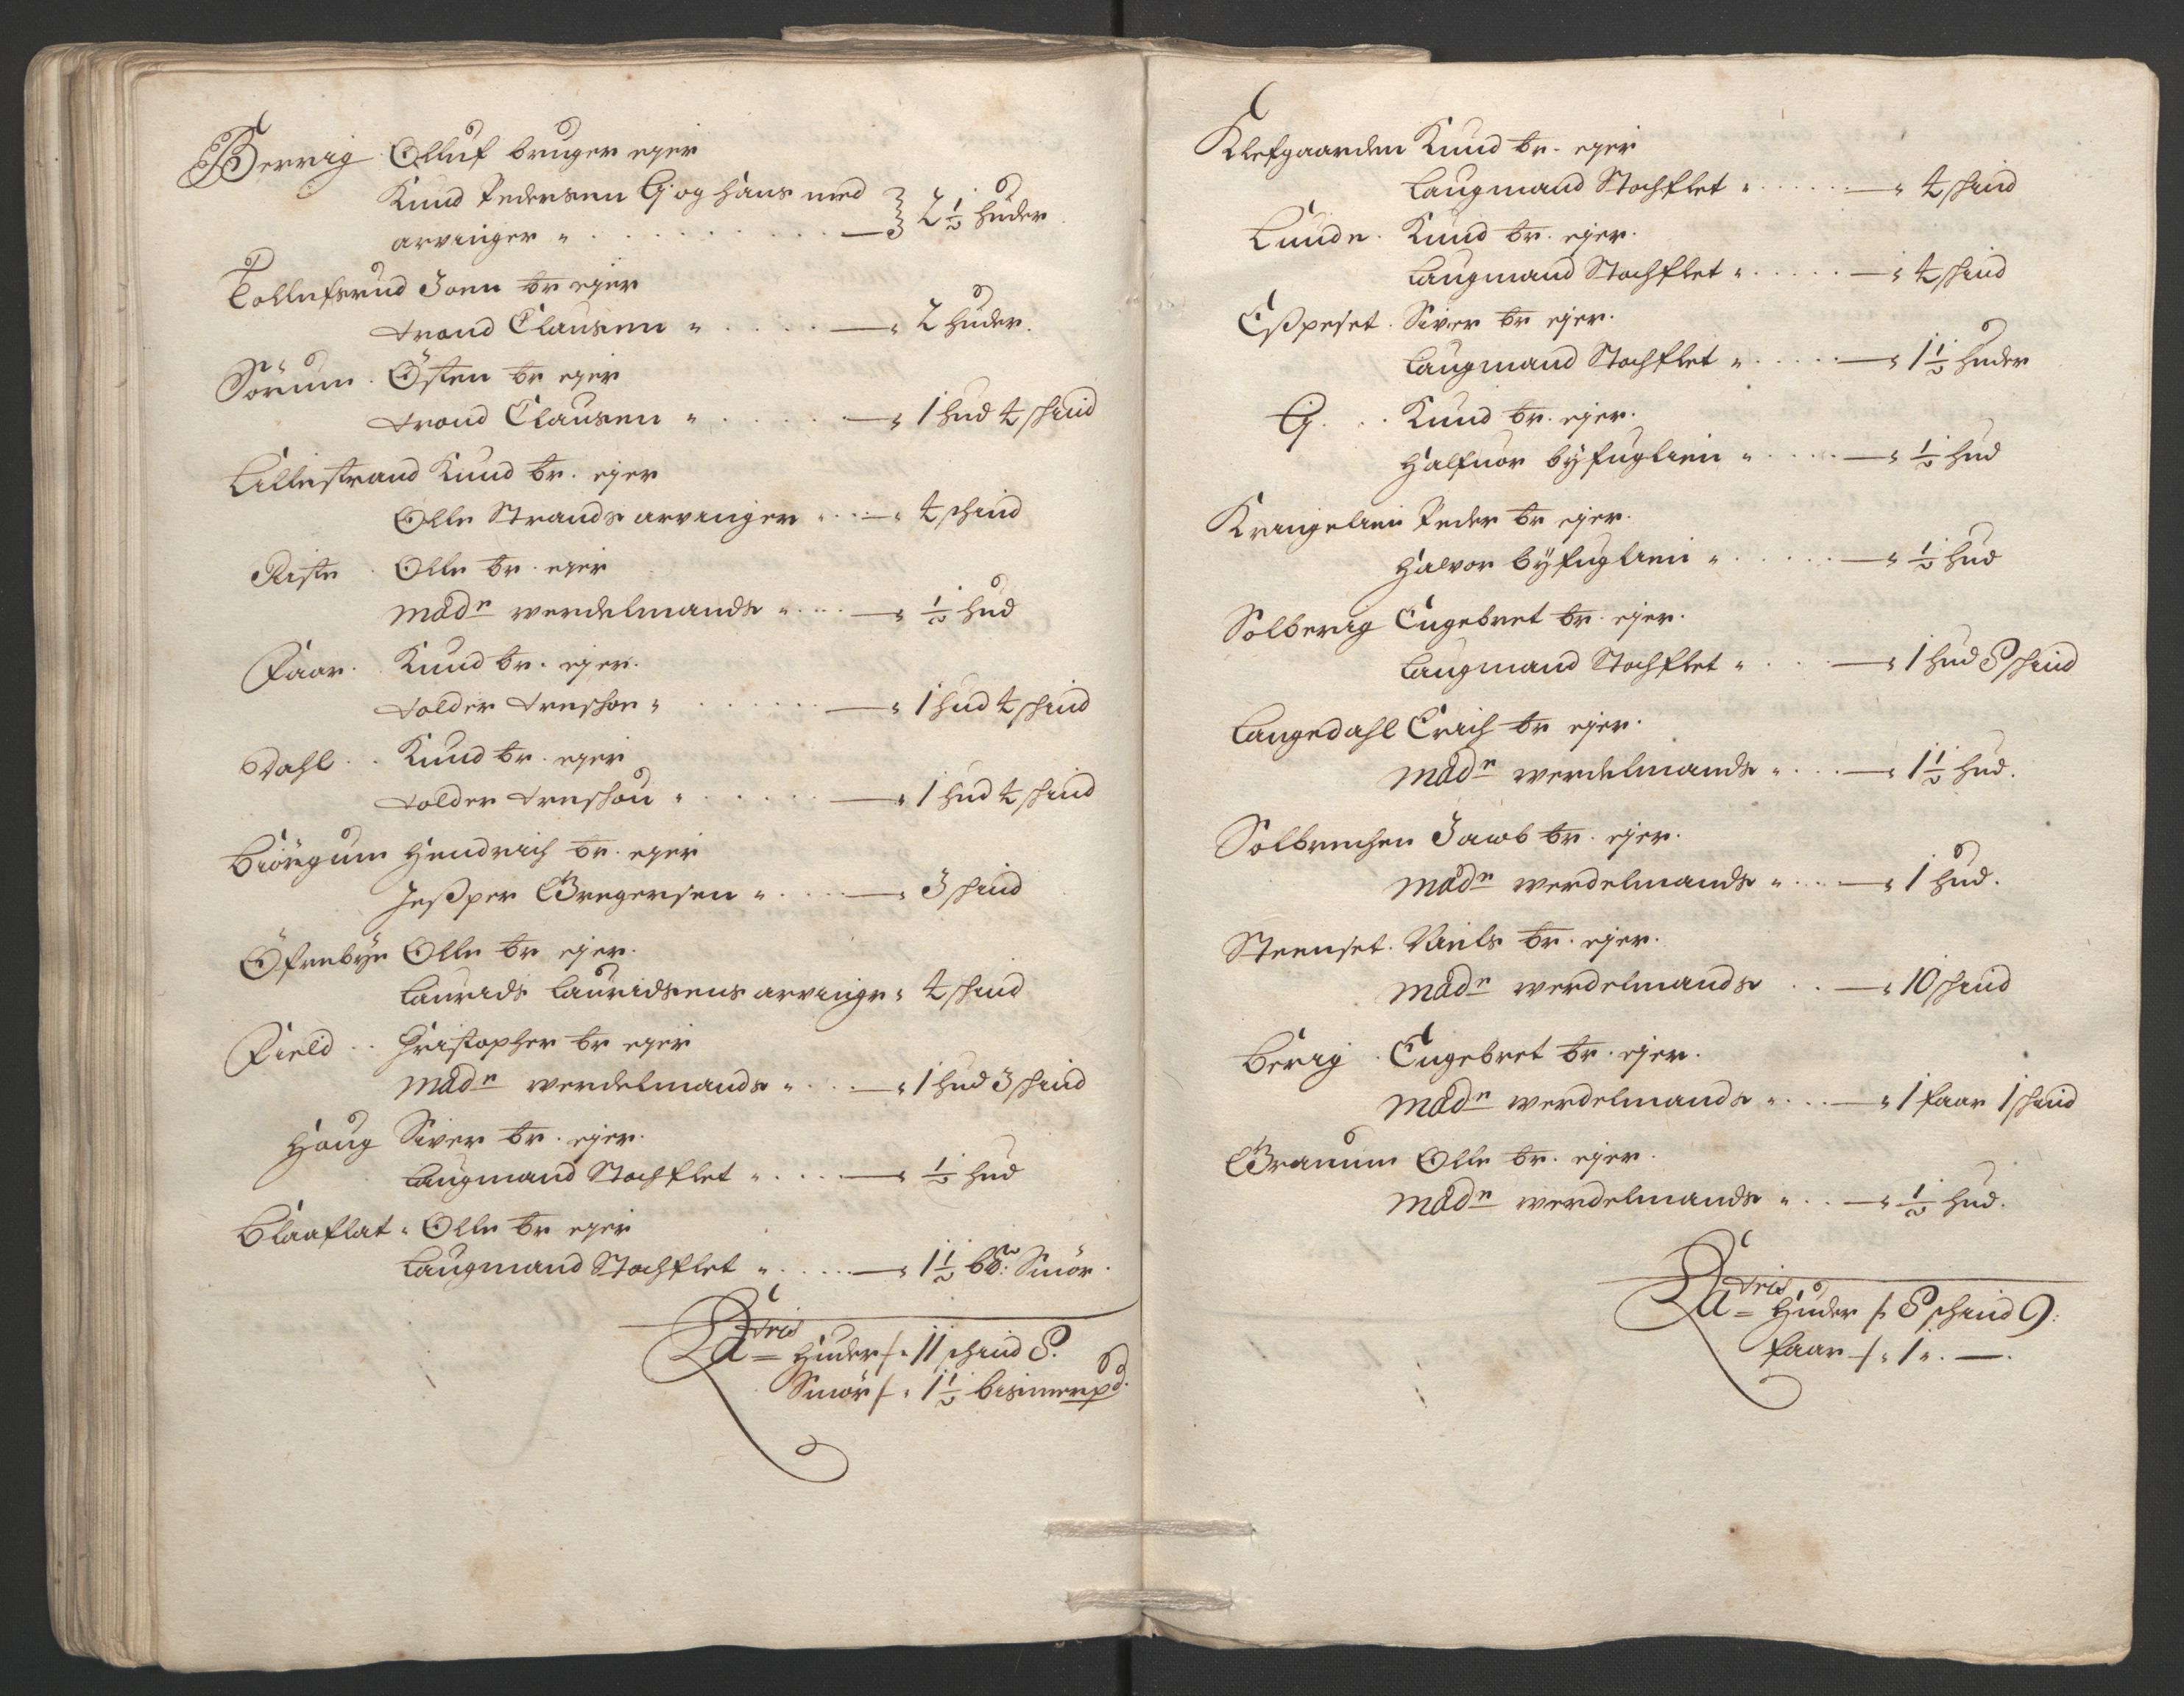 Berrig Olluf bruger eyer
Knud Pedersen Gj og hans med
arvinger „ . . . — 2 1/2 huder
Tollefsrud Joen br eyer
trond Clausen „ . . . — „ 2 huder.
Sörum . Östen br eyer
trond Clausen „ . . . — „ 1 hud 4 skind
Lillestrand Knud br. eyer
Olle Strands arvinger „ . . — „ 4 skind
Riste . Olle br. eyer
mad͞e werdelmands „ . . . — „ 1/2 hud
Faar . Knud br. eyer.
tolder treschou „ . . . — „ 1 hud 4 skind
Dahl . . Knud br. eyer
tolder treschou „ . . . — „ 1 hud 4 skind
Biörgum Hendrich br. eyer
Jeßper Gregersen „ . . . — „ 3 skind
Öfrebye Olle br eyer.
Laurids Lauridsens arvinger „ 4 skind
Field . . Christopher br eyer
mad͞e werdelmands „ . . . — „ 1 hud 3 skind
Houg Siver br. eyer.
Laugmand Stochflet „ . . . — 1/2 hud
Blaaflat „ Olle br eyer
Laugmand Stochflet „ . . . — „ 1 1/2 b℔: Smör.
Latris Huder /: 11 skind 8.
Smör /: 1 1/2 bismerpd.
Klefgaarden Knud br. eyer
Laugmand Stochflet „ . . . — „ 4 skind
Lunde . Knud br. eyer.
Laugmand Stochflet „ . . . — „ 4 skind
Eßpeset . Siver br eyer.
Laugmand Stochflet „ . . . — „ 1 1/2 huder
Gj . . Knud br. eyer.
Halfuor byfuglien „ . . . — „ 1/2 hud
Kringelien Peder br eyer.
Halvor byfuglien „ . . . — „ 1/2 hud
Solberig Engebret br. eyer.
Laugmand Stochflet „ . . . — „ 1 hud 8 skind
Langedahl Erich br eyer.
mad͞e werdelmands „ . . . — „ 1 1/2 hud.
Solbrechen Jacob br. eyer.
mad͞e werdelmands „ . . . — „ 1 hud.
Steenset . Niels br. eyer.
mad͞e werdelmands . . — „ 10 skind
Berig . Engebret br. eyer.
mad͞e werdelmands „ . . . — „ 1 faar 1 skind
Granum Olle br. eyer.
mad͞e werdelmands „ . . — „ 1/2 hud.
Latris Huder /: 8 skind 9:
faar /: 1 „ . —.